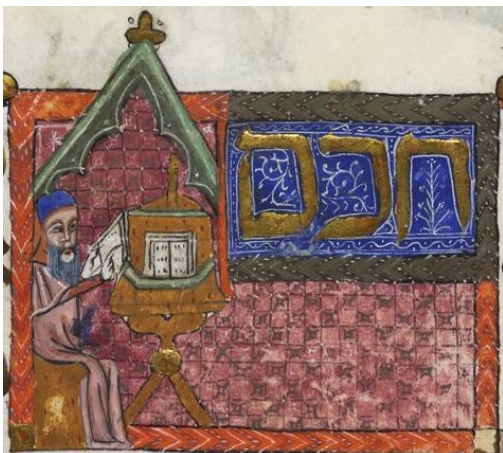 חכם